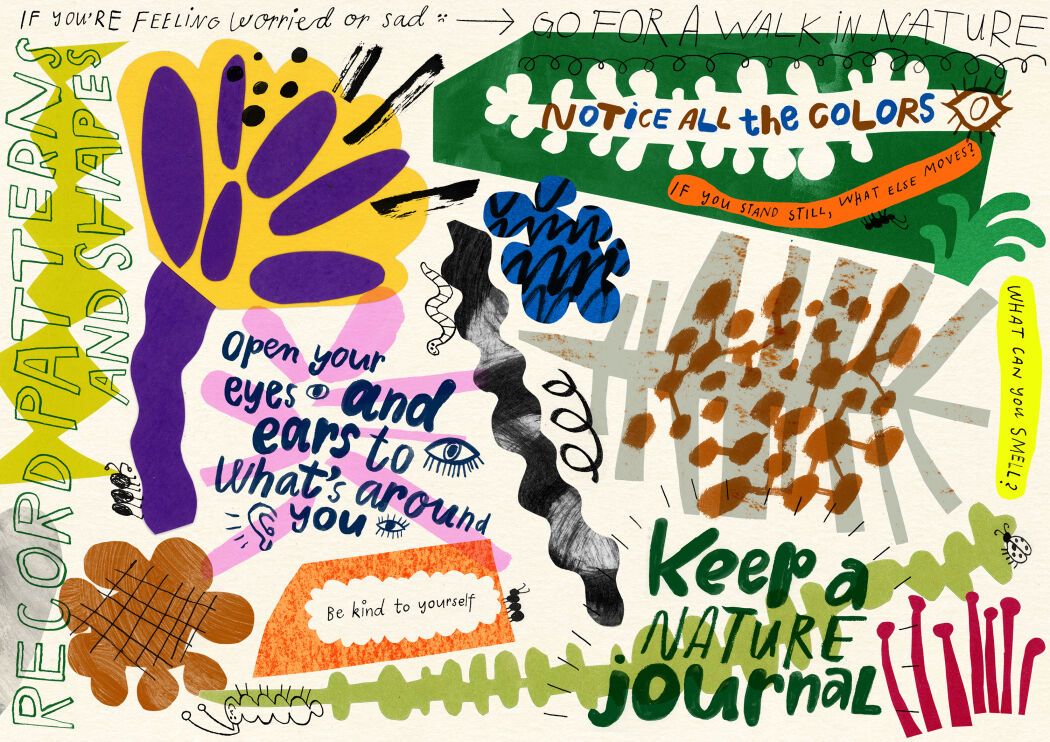 IF YOU'RE FEELING worried or sad
GO FOR A WALK IN NATURE
RECORD PATTERNS
AND SHAPES
NOTICE ALL the COLORS
IF YOU STAND STILL, WHAT ELSE MOVES?
WHAT CAN YOU SMELL?
Open your
eyes and
ears to
What's around
you
Be kind to yourself
Keep a
NATURE
journal